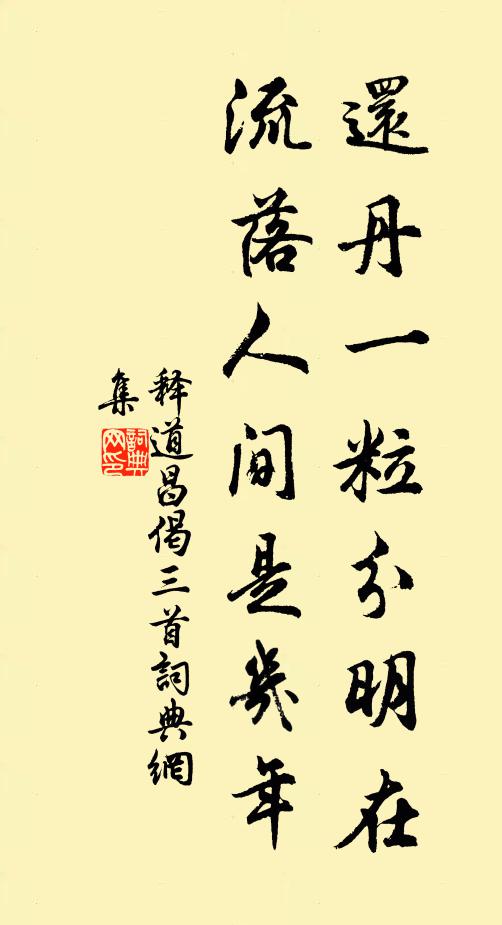 還丹一粒分明在
流落人間是幾年
释道昌偈三首詞典網
集
詞典網印